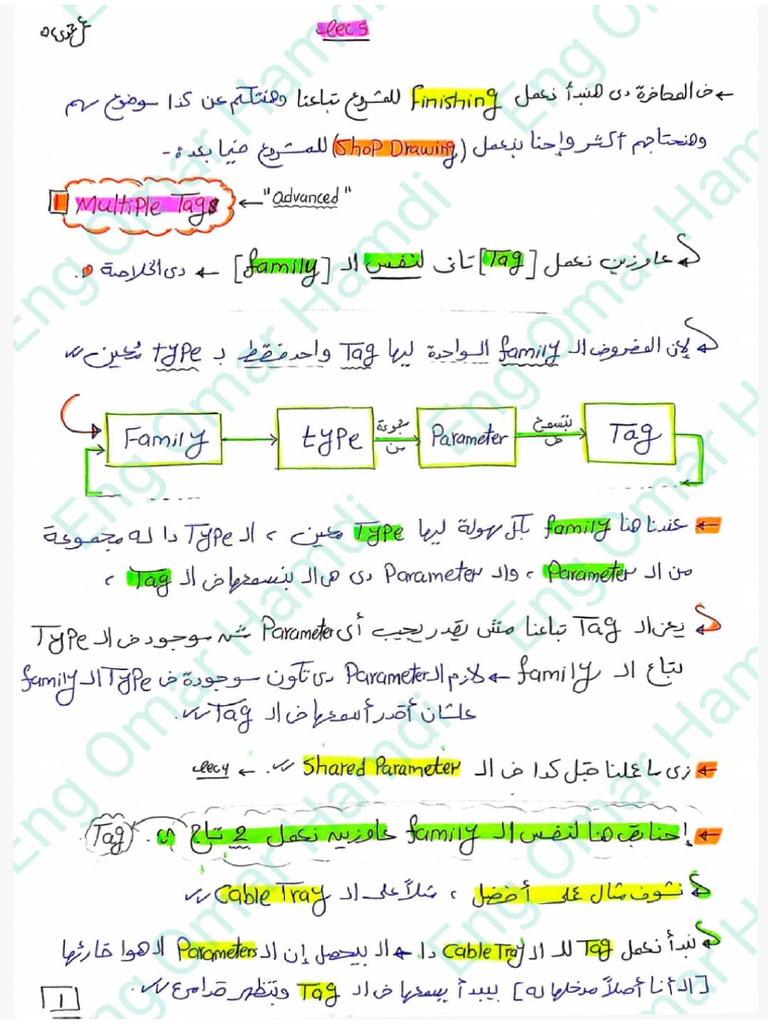 lec 5
ف المحاضرة دى هنبدأ نعمل Finishing للمشروع تباعنا وهنتكلم عن كذا موضوع مهم
وهنحتاجهم أكتر وإحنا بنعمل (Shop Drawing) للمشروع فيما بعد :-
1 Multiple Tags ← "Advanced"
عاوزين نعمل [Tag] تانى لنفس الـ [family] ← دى الخلاصة.
لإن المفروض الـ family الواحدة ليها Tag واحد فقط بـ type معين
Family type مجموعة من Parameter بتسمع ف Tag
عندنا هنا family بكل سهولة ليها Type معين ، الـ Type دا له مجموعة
من الـ Parameter ، والـ Parameter دى هى الـ بنسمعها ف الـ Tag ،
يعنى الـ Tag تباعنا مش يقدر يجيب أى Parameter مش موجود ف الـ Type
بتاع الـ family ← لازم الـ Parameter دى تكون موجودة ف Type الـ family
علشان أقدر أسمعها ف الـ Tag.
زى ما عملنا قبل كدا ف الـ Shared Parameter ← lec 4
إحنا بقى هنا لنفس الـ family عاوزين نعمل 2 تاج . (Tag)
نشوف مثال على أفضل ، مثلاً على الـ Cable Tray
نبدأ نعمل Tag للـ Cable Tray دا ← الـ بيحصل إن الـ Parameters الـ هوا قارئها
[الـ أنا أصلاً مدخلها له] بيبدأ يسمعها ف الـ Tag وبتظهر قدامى.
1
Eng Omar Hamdi